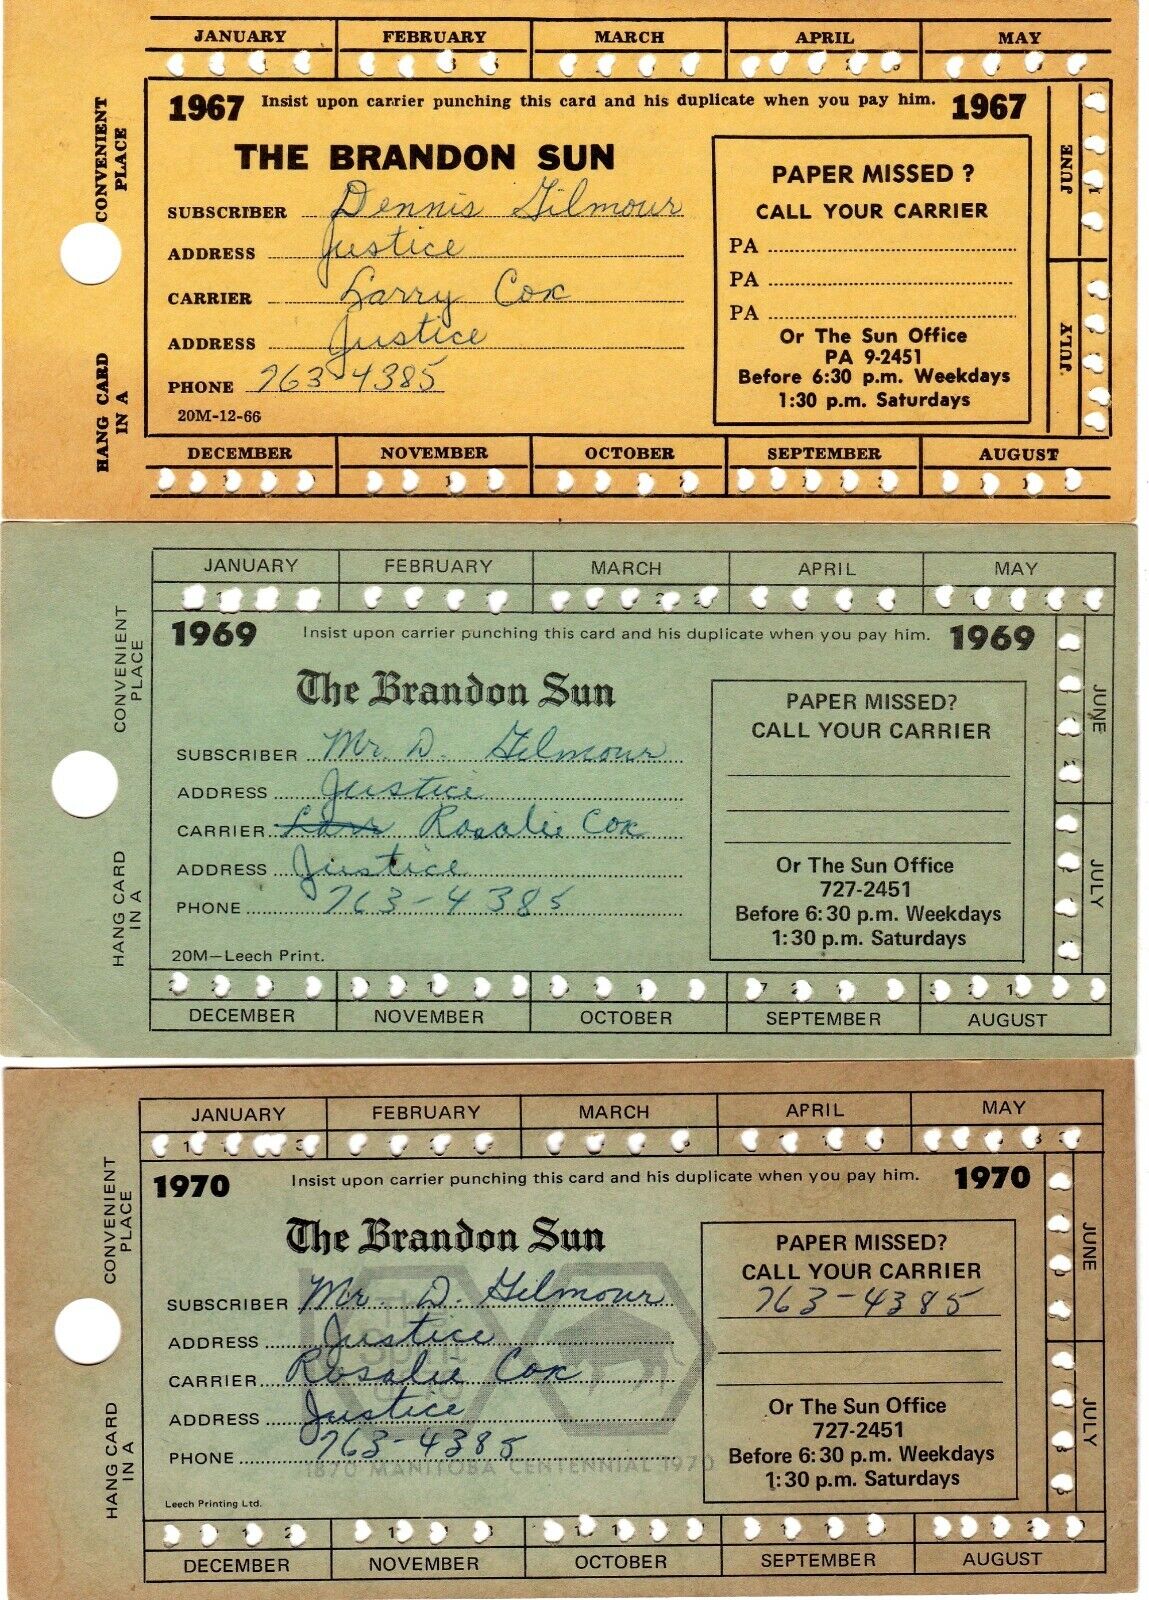 JANUARY FEBRUARY MARCH APRIL MAY
1967 Insist upon carrier punching this card and his duplicate when you pay him. 1967
THE BRANDON SUN
SUBSCRIBER Dennis Gilmour
ADDRESS Justice
CARRIER Larry Cox
ADDRESS Justice
PHONE 763-4385
20M-12-66
PAPER MISSED ?
CALL YOUR CARRIER
PA
PA
PA
Or The Sun Office
PA 9-2451
Before 6:30 p.m. Weekdays
1:30 p.m. Saturdays
JUNE
JULY
HANG CARD IN A
CONVENIENT PLACE
DECEMBER NOVEMBER OCTOBER SEPTEMBER AUGUST
JANUARY FEBRUARY MARCH APRIL MAY
1969 Insist upon carrier punching this card and his duplicate when you pay him. 1969
The Brandon Sun
SUBSCRIBER Mr. D. Gilmour
ADDRESS Justice
CARRIER Rosalie Cox
ADDRESS Justice
PHONE 763-4385
20M—Leech Print.
PAPER MISSED?
CALL YOUR CARRIER
Or The Sun Office
727-2451
Before 6:30 p.m. Weekdays
1:30 p.m. Saturdays
JUNE
JULY
HANG CARD IN A
CONVENIENT PLACE
DECEMBER NOVEMBER OCTOBER SEPTEMBER AUGUST
JANUARY FEBRUARY MARCH APRIL MAY
1970 Insist upon carrier punching this card and his duplicate when you pay him. 1970
The Brandon Sun
SUBSCRIBER Mr D. Gilmour
ADDRESS Justice
CARRIER Rosalie Cox
ADDRESS Justice
PHONE 763-4385
1870 MANITOBA CENTENNIAL 1970
Leech Printing Ltd.
PAPER MISSED?
CALL YOUR CARRIER
763-4385
Or The Sun Office
727-2451
Before 6:30 p.m. Weekdays
1:30 p.m. Saturdays
JUNE
JULY
HANG CARD IN A
CONVENIENT PLACE
DECEMBER NOVEMBER OCTOBER SEPTEMBER AUGUST